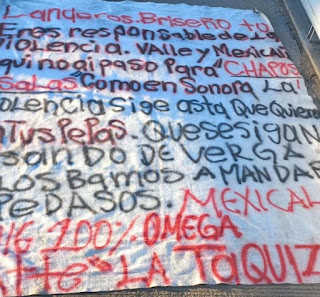 Landeros. Briseño tu
Eres responsable de La
violencia. valle y Mexicali
qui no ai paso Para "CHAPOS
SaLas" Como en Sonora La
olencia Sige asta Que Quiero
nTus PePas. QUe seSigaN
sanDO DE VERGA
LOS BamOS A MANDAR
PeDASOS. MEXICAL
100% OMEGA
Atte" LA TaQUIZ